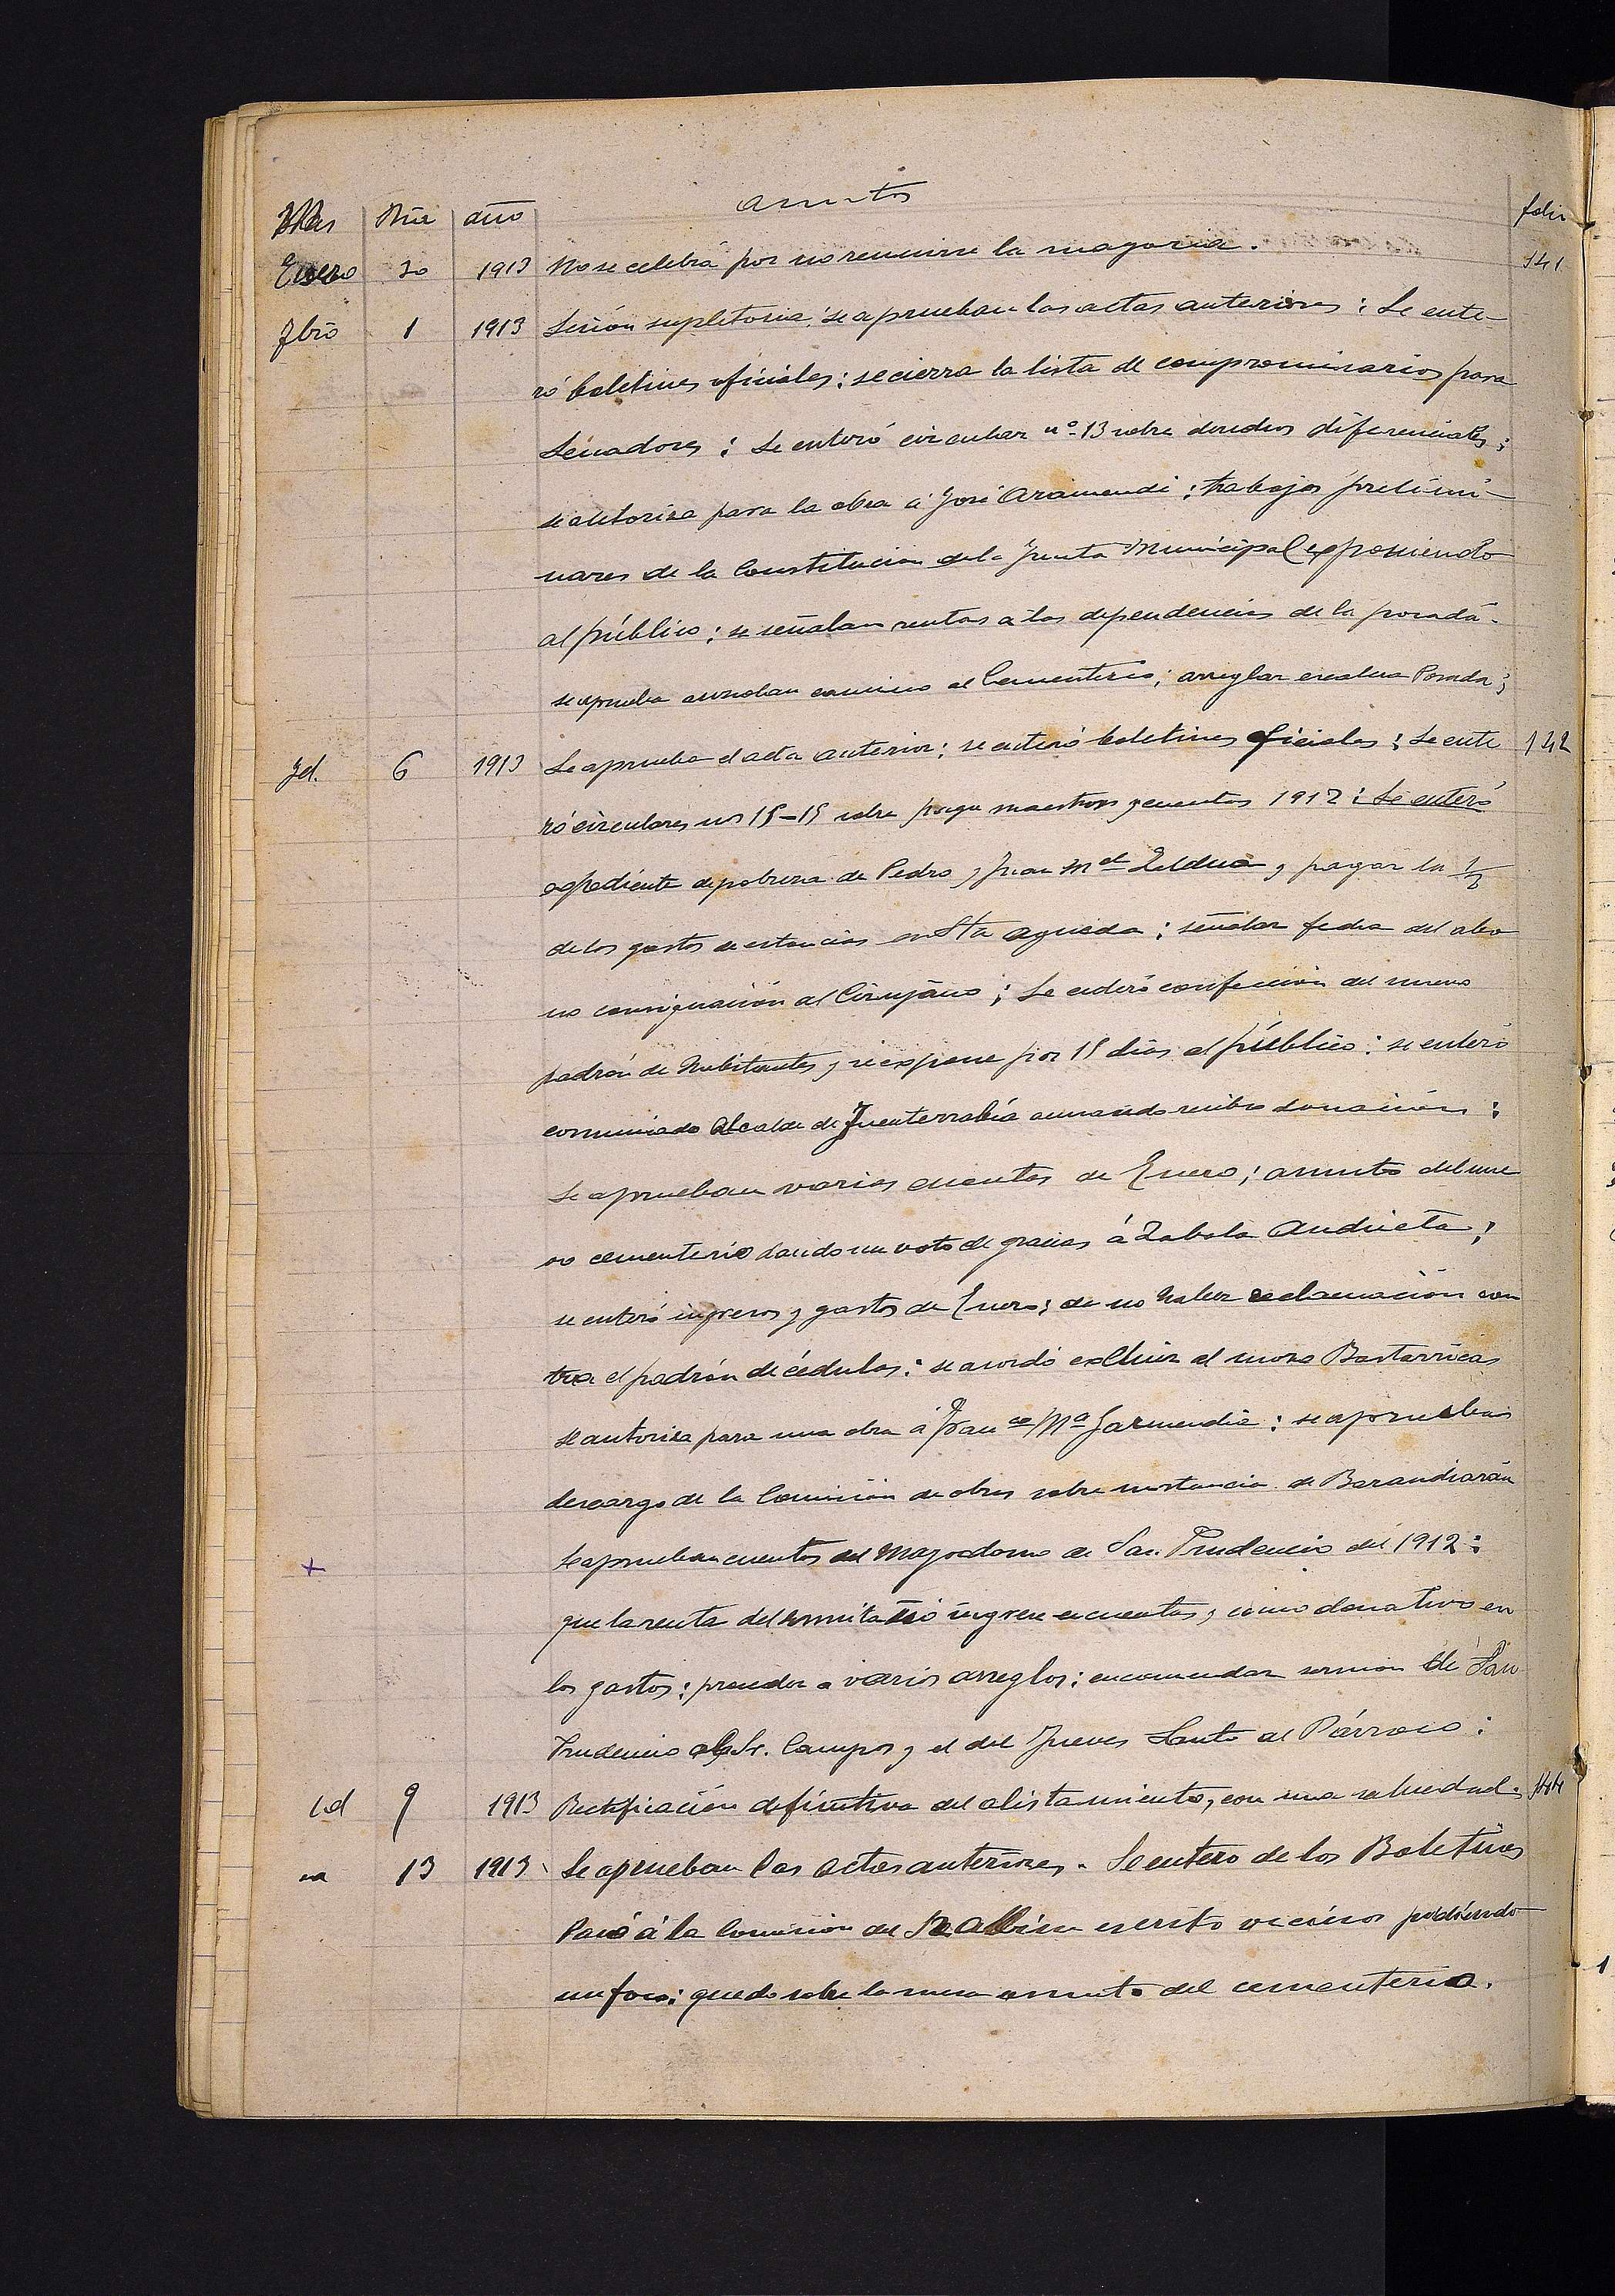 Mes Día año asuntos folio
Enero 30 1913 No se celebra por no reunirse la mayoria. 141
Fbro 1 1913 Sesión supletoria; se aprueban las actas anteriores: Se ente-
ró boletines oficiales: se cierra la lista de compromisarios para
Senadores: Se enteró circular nº 13 sobre derechos diferenciales;
se autoriza para la obra á José Aramendi; trabajos prelimi-
nares de la Constitucion de la Junta Municipal exponiendo
al público; se señalan rentas á las dependencias de la posada.
se aprueba camino al Cementerio; arreglar escalera Posada;
Id. 6 1913 Se aprueba el acta anterior; se enteró boletines oficiales: Se ente 142
ró circulares nos 15-19 sobre pago maestros y cuentas 1912: Se enteró
expediente de pobreza de Pedro y Juan Mel Zaldua y pagar la ½
de los gastos de estancias en Sta Agueda: señalar fecha del abo
no consignación al Cirujano; Se enteró confección del nuevo
padrón de habitantes y se expone por 15 dias al público: se enteró
comunicado Alcalde de Fuenterrabía acusando recibo donación:
Se aprueban varias cuentas de Enero; asunto del nue
vo cementerio dando un voto de gracias á Zabala Andrieta;
se enteró ingresos y gastos de Enero; de no haber reclamación con
tra el padrón de cédulas: se acordó excluir al mozo Bastarricas
se autoriza para una obra á Franco Mª Garmendia: se aprueban
descargo de la Comisión de obras sobre instancia de Barandiarán
+ Se aprueban cuentas del Mayordomo de San Prudencio del 1912:
que la renta del ermitaño ingrese en cuentas y como donativo en
los gastos: proceder a varios arreglos: encomendar sermon de San
Prudencio al Sr. Campos y el del Jueves Santo al Párroco:
id 9 1913 Rectificación definitiva del alistamiento, con una 144
id 13 1913 Se aprueban las actas anteriores. Se entero de los Boletines
Pasó á la Comisión de escrito vecinos pidiendo
un foco: quedo sobre la mesa asunto del cementerio.